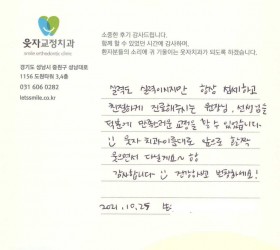 웃자교정치과
smile orthodontic clinic
경기도 성남시 중원구 성남대로
1156 도원타워 3,4층
031 606 0282
letssmile.co.kr
소중한 후기 감사드립니다.
함께 할 수 있었던 시간에 감사하며,
환자분들의 소리에 귀 기울이는 웃자치과가 되도록 하겠습니다.
실력도 실력이지만 항상 섬세하고
친절하게 진료해주시는 원장님, 선생님들
덕분에 만족스러운 교정을 할 수 있었습니다
웃자 치과이름대로 앞으로 활짝
웃으면서 다닐게요~
감사합니다 건강하시고 번창하세요!
2021. 10. 25